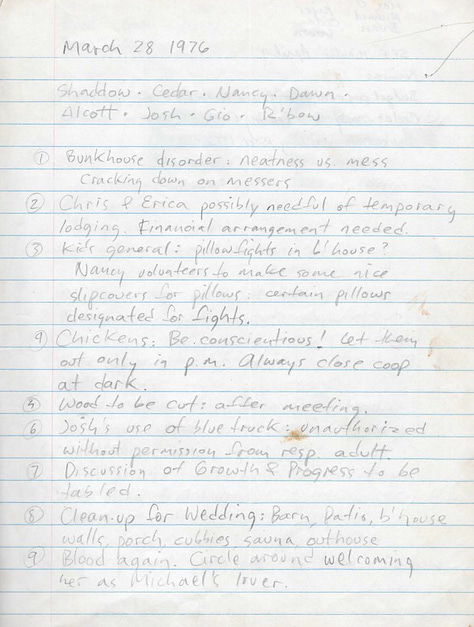 March 28 1976
Shaddow · Cedar · Nancy · Dawn ·
Alcott · Josh · Gio · R'bow
① Bunkhouse disorder: neatness vs. mess
Cracking down on messers
② Chris & Erica possibly needful of temporary
lodging. Financial arrangement needed.
③ Kids general: pillowfights in b'house?
Nancy volunteers to make some nice
slipcovers for pillows: certain pillows
designated for fights.
④ Chickens: Be conscientious! Let them
out only in p.m. Always close coop
at dark.
⑤ Wood to be cut: after meeting.
⑥ Josh's use of blue truck: unauthorized
without permission from resp. adult.
⑦ Discussion of Growth & Progress to be
tabled.
⑧ Clean-up for Wedding: Barn, Patio, b'house
walls, porch, cubbies, sauna, outhouse
⑨ Blood again. Circle around welcoming
her as Michael's lover.